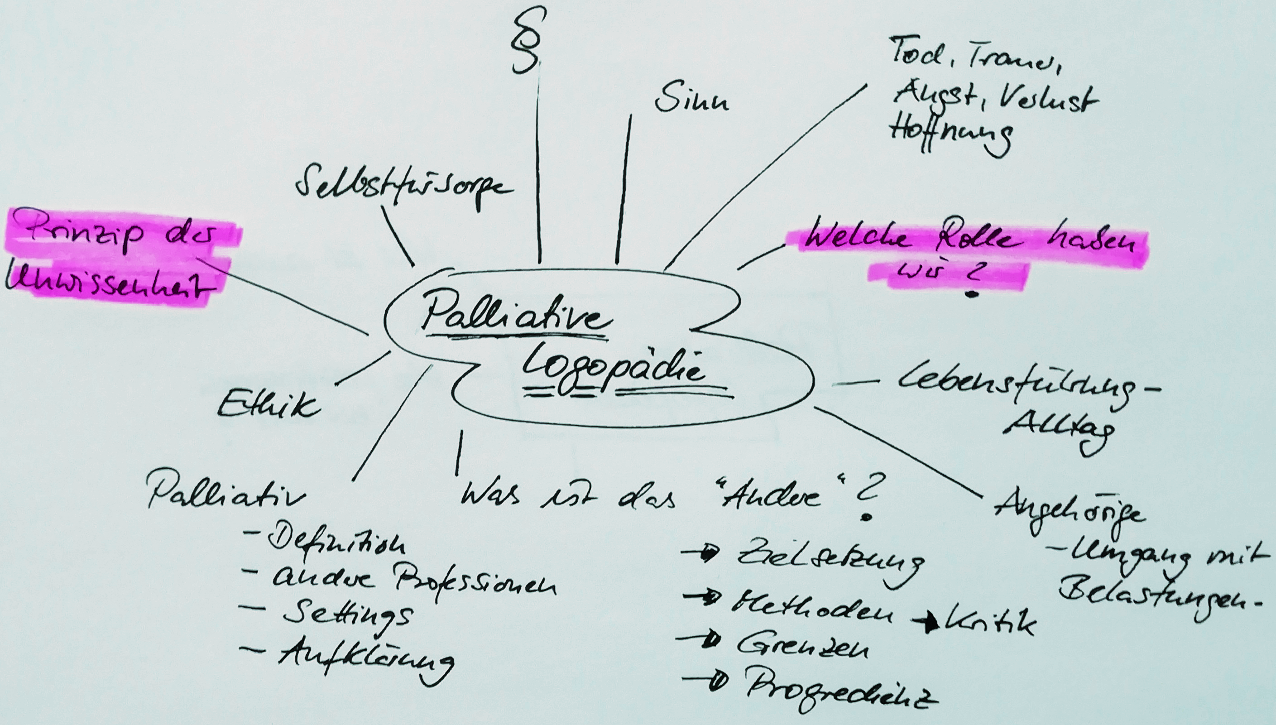 §
Sinn
Tod, Trauer,
Angst, Verlust
Hoffnung
Selbstfürsorge
Prinzip der
Unwissenheit
Welche Rolle haben
wir?
Palliative
Logopädie
Ethik
Lebensführung-
Alltag
Palliativ
- Definition
- andere Professionen
- Settings
- Aufklärung
Was ist das "Andere"?
→ Zielsetzung
→ Methoden → Kritik
→ Grenzen
→ Progredienz
Angehörige
- Umgang mit
Belastungen-